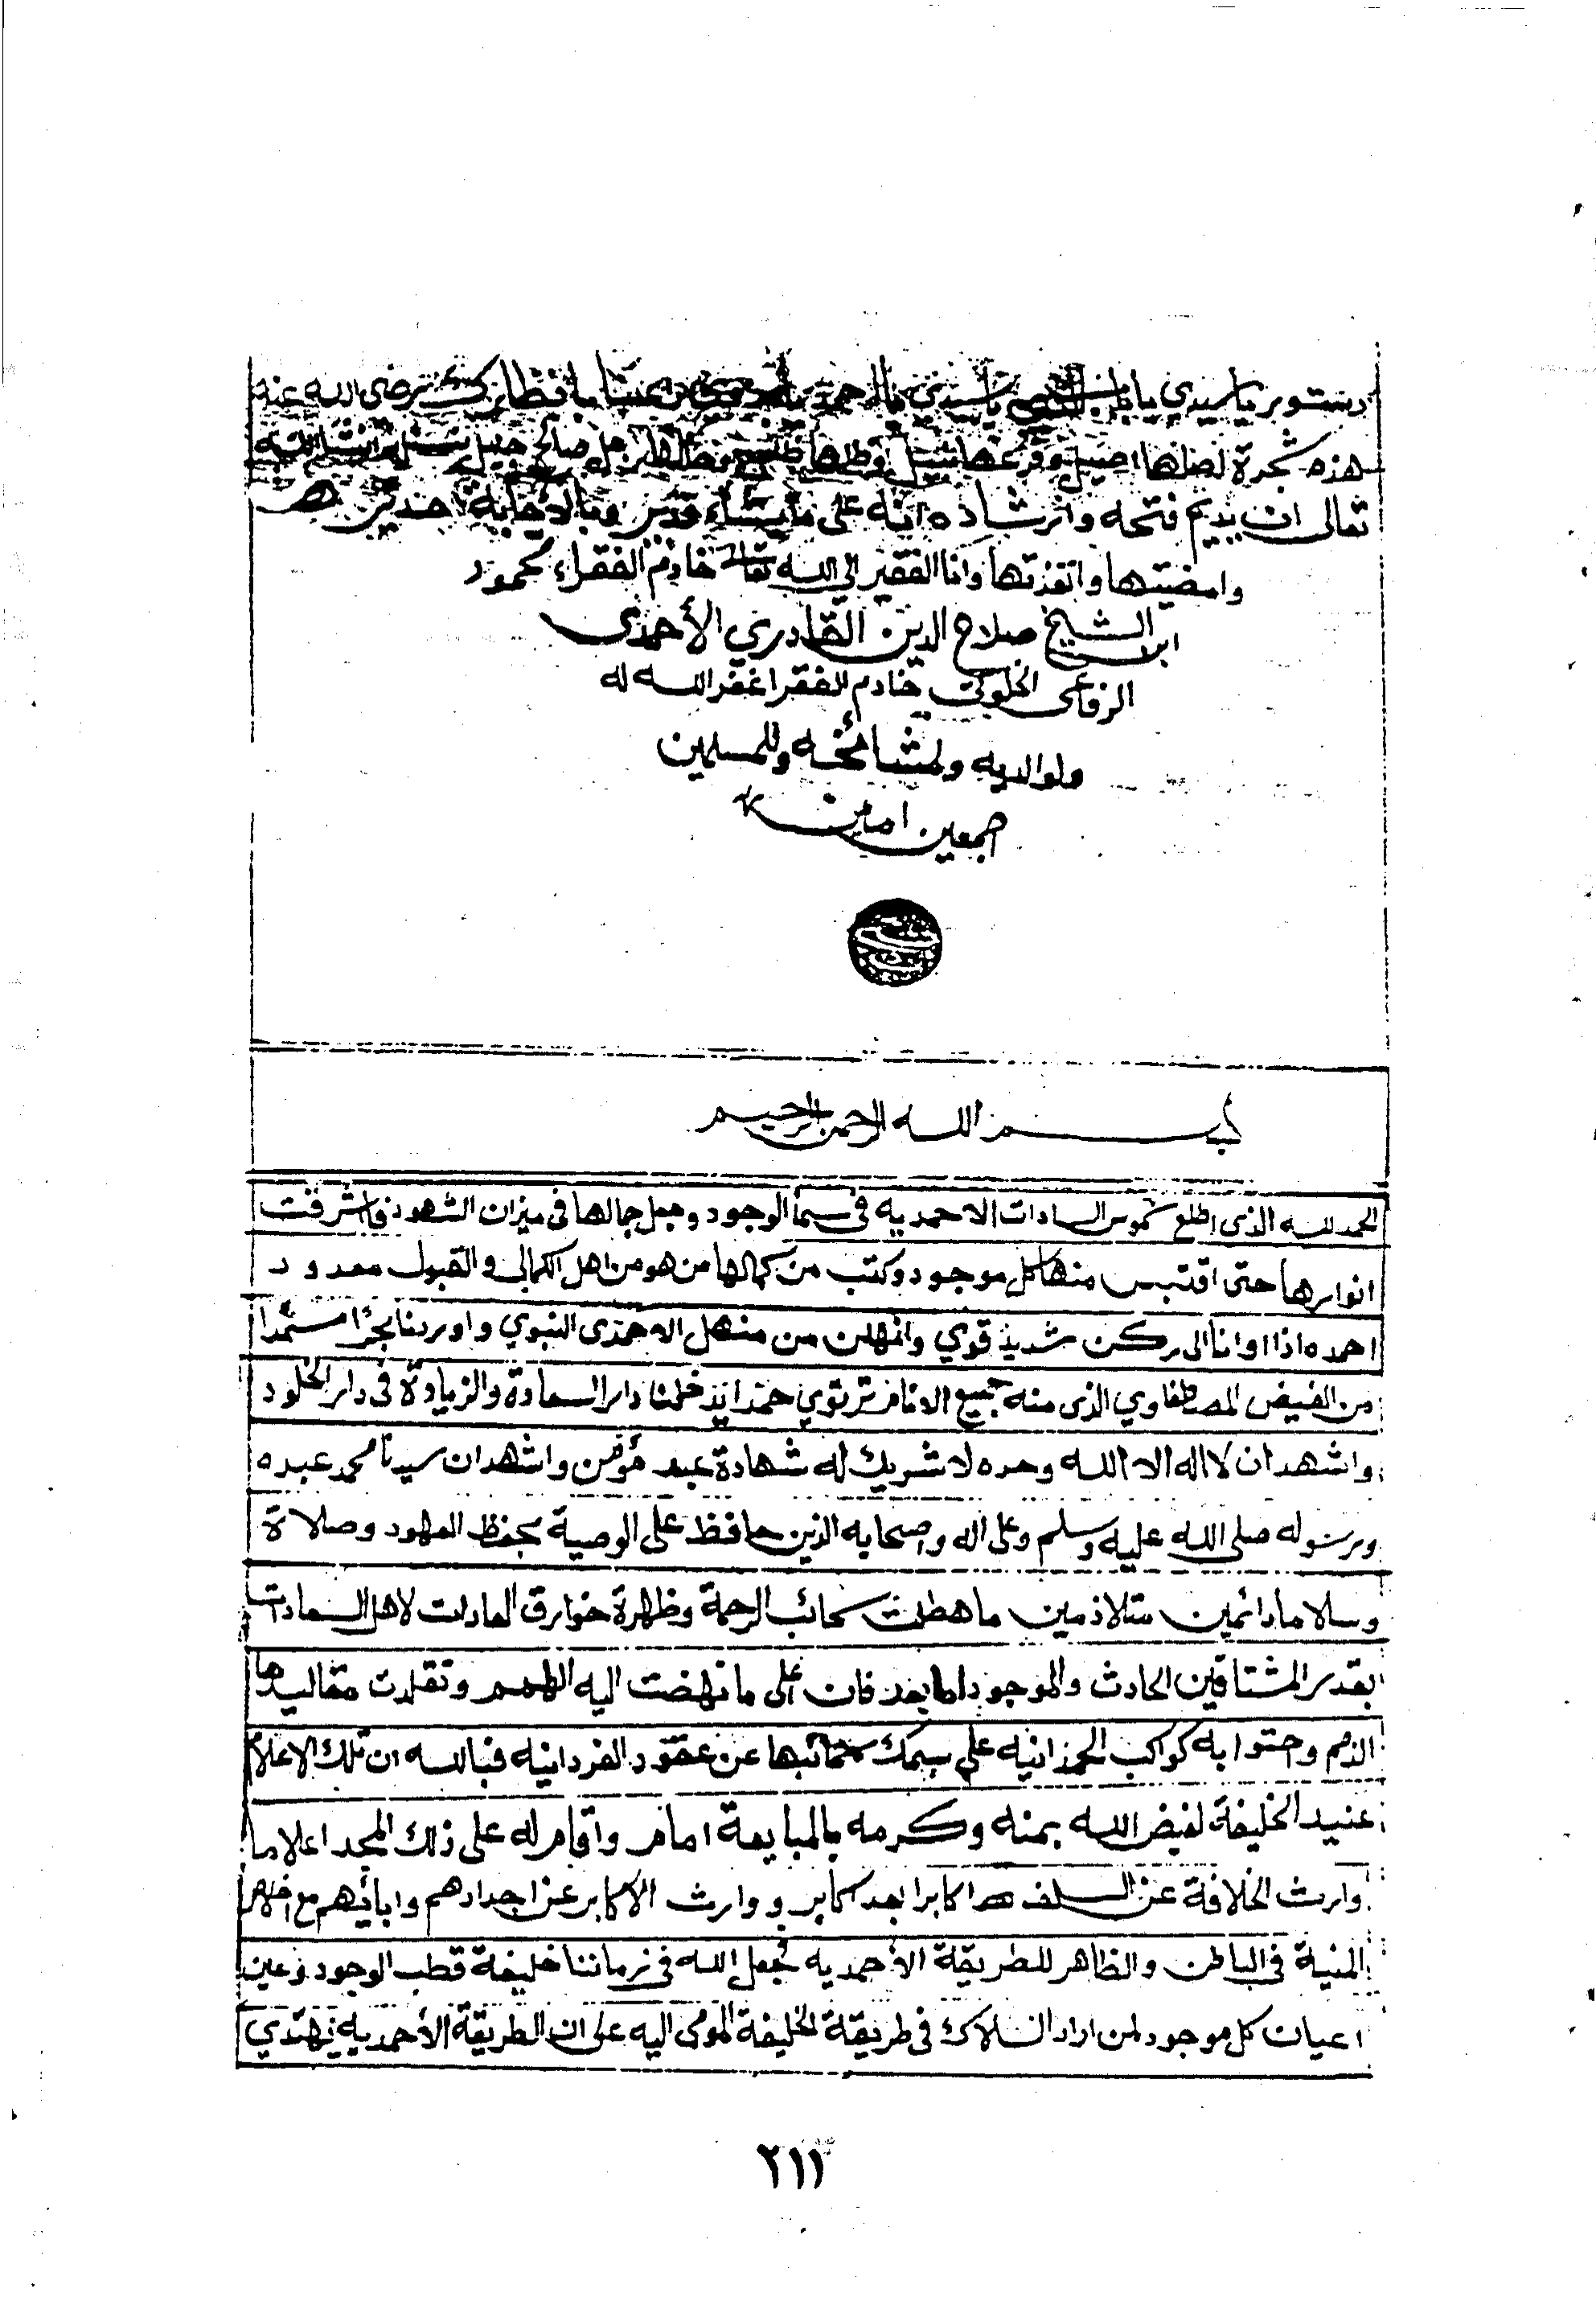 دستور يا سيدي يا
هذه شجرة اصلها اصيل وفرعها وظلها رجل صالح جليل
تعالى ان يديم فتحه وارشاده انه على ما يشاء قدير وبالاجابة جدير
وامضيتها وانفذتها وانا الفقير الى الله تعالى خادم الفقراء محمود
ابن الشيخ صلاح الدين القادري الأحمدى
الرفاعى الخلوتى خادم الفقرا غفر الله له
ولوالديه ولمشائخه وللمسلمين
اجمعين امين
بسم الله الرحمن الرحيم
الحمد لله الذى اطلع شموس السادات الاحمديه فى سما الوجود وجعل جمالها فى ميزان الشهود واشرقت
انوارها حتى اقتبس منها كل موجود وكتب من كمالها من هو من اهل الكمال والقبول معدود
احمده اذا اوانا الى ركن شديد قوي وانهلن من منهل الاحمدى النبوي واوردنا بحرا مستمدا
من الفيض المصطفاوي الذى منه جميع الانام ترتوي حمدا يدخلنا دار السعادة والزيادة فى دار الخلود
واشهد ان لا اله الا الله وحده لا شريك له شهادة عبد مؤمن واشهد ان سيدنا محمد عبده
ورسوله صلى الله عليه وسلم وعلى اله واصحابه الذين حافظ على الوصية بحفظ العهود وصلاة
وسلاما دائمين متلازمين ما هطلت سحائب الرحمة وظهرة خوارق العادات لاهل السعادات
بقدر المشتاقين الحادث والموجود اما بعد فان اعلى ما نهضت اليه الهمم وتقلدت مقاليدها
الذمم واحتوا به كواكب الحمدانيه على سمك سحائبها عن عقود الفردانيه فبالله ان تلك الاعلام
عنيد الخليفة لفيض الله بمنه وكرمه بالمبايعة امام واقام له على ذلك المجد اعلاما
وارث الخلافة عن السلف كابرا بعد كابر ووارث الاكابر عن اجدادهم وابائهم مع
المنية فى الباطن والظاهر للطريقة الأحمديه فجعل الله فى زماننا خليفة قطب الوجود وعين
اعيات كل موجود لمن اراد السلاك فى طريقة الخليفة المومى اليه على ان الطريقة الأحمديه يهتدي
٢١٢